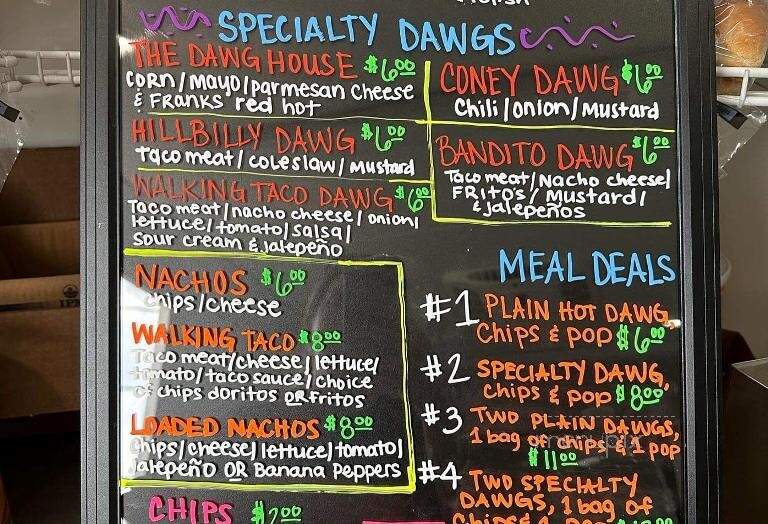 SPECIALTY DAWGS
THE DAWG HOUSE $6.00
Corn/Mayo/parmesan cheese
& FRANKS' red hot
HILLBILLY DAWG $6.00
Taco meat/coleslaw/Mustard
WALKING TACO DAWG $6.00
Taco meat/nacho cheese/onion/
lettuce/tomato/salsa/
sour cream & jalepeño
CONEY DAWG $6.00
Chili/onion/Mustard
BANDITO DAWG $6.00
Taco meat/Nacho cheese/
FRITO'S/Mustard/
& jalepeños
NACHOS $6.00
chips/cheese
WALKING TACO $8.00
Taco meat/cheese/lettuce/
tomato/taco sauce/choice
of chips doritos OR fritos
LOADED NACHOS $8.00
chips/cheese/lettuce/tomato/
jalepeño OR Banana Peppers
CHIPS $2.00
MEAL DEALS
#1 PLAIN HOT DAWG,
Chips & pop $6.00
#2 SPECIALTY DAWG,
chips & pop $8.00
#3 TWO PLAIN DAWGS,
1 bag of chips & 1 pop
$11.00
#4 TWO SPECIALTY
DAWGS, 1 bag of